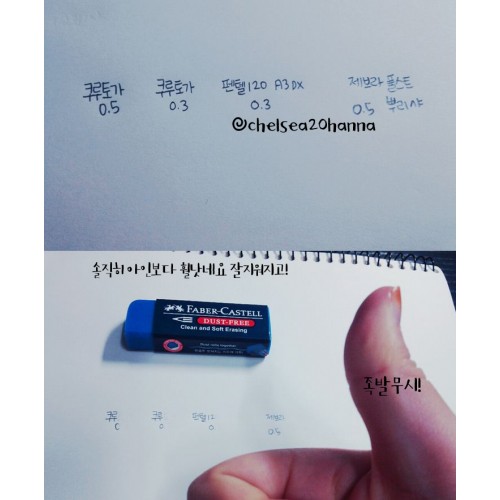 쿠루토가 쿠루토가 펜텔120 A3DX 제브라 폴스트
0.5 0.3 0.3 0.5 뿌리샤
@chelsea20hanna
솔직히 아인보다 훨낫네요 잘지워지고!
FABER-CASTELL
DUST-FREE
Clean and Soft Erasing
족발무시!
쿠루 쿠루 펜텔12 제브라
0 0 0.5